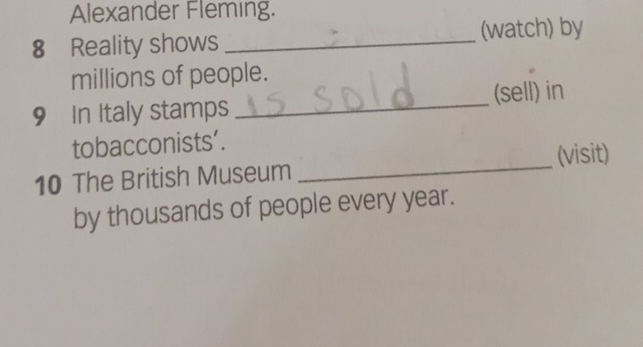 Alexander Fleming.
8 Reality shows ____________ (watch) by
millions of people.
9 In Italy stamps is sold (sell) in
tobacconists’.
10 The British Museum ____________ (visit)
by thousands of people every year.